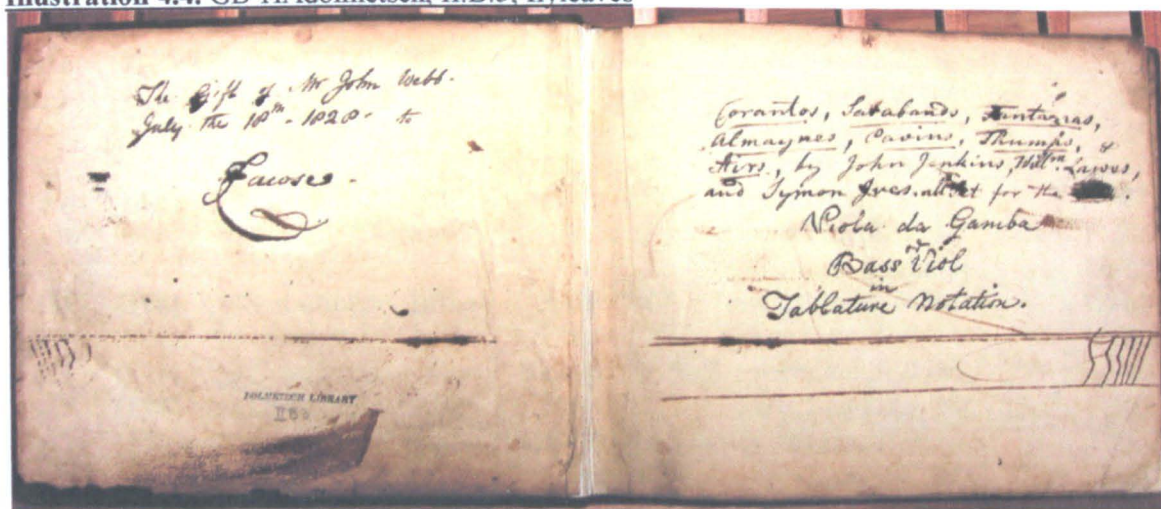 Illustration 4.4. GB-HAdolmetsch, II.B.3, flyleaves
The Gift of Mr John Webb-
July the 18th - 1828 - to
Corantos, Sarabands, Fantazias,
Almaynes, Pavins, Thumps, &
Airs, by John Jenkins, Willm. Lawes,
and Symon Ives. all set for the
Viola da Gamba
or
Bass Viol
in
Tablature Notation.
DOLMETSCH LIBRARY